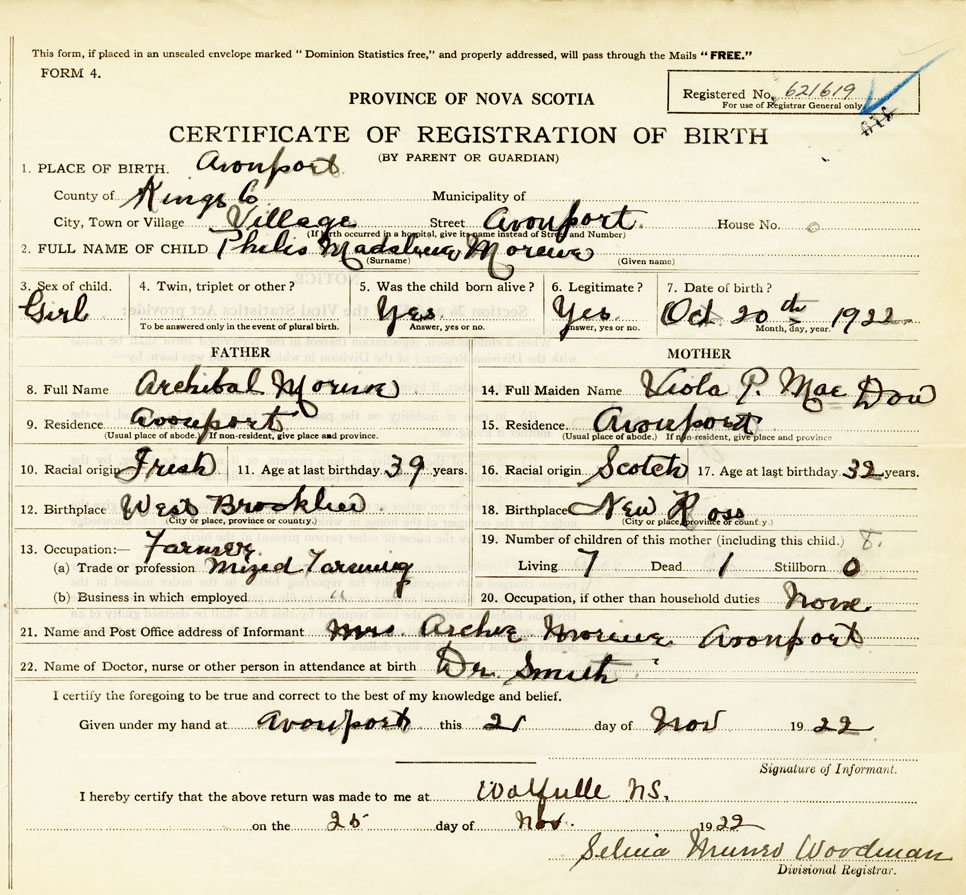 This form, if placed in an unsealed envelope marked “ Dominion Statistics free,” and properly addressed, will pass through the Mails “FREE.”
FORM 4.
Registered No. 621619
For use of Registrar General only
PROVINCE OF NOVA SCOTIA
CERTIFICATE OF REGISTRATION OF BIRTH
(BY PARENT OR GUARDIAN)
1. PLACE OF BIRTH. Avonport
County of Kings Co Municipality of
City, Town or Village Village Street Avonport House No.
(If birth occurred in a hospital, give its name instead of Street and Number)
2. FULL NAME OF CHILD Philis Madeline Morine
(Surname) (Given name)
3. Sex of child. 4. Twin, triplet or other? 5. Was the child born alive? 6. Legitimate? 7. Date of birth?
Girl Yes Yes Oct 20th 1922
To be answered only in the event of plural birth. Answer, yes or no. Answer, yes or no. Month, day, year.
FATHER MOTHER
8. Full Name Archibal Morine 14. Full Maiden Name Viola P. Mac Dow
9. Residence Avonport 15. Residence Avonport
(Usual place of abode.) If non-resident, give place and province. (Usual place of abode.) If non-resident, give place and province
10. Racial origin Irish 11. Age at last birthday 39 years. 16. Racial origin Scotch 17. Age at last birthday 32 years.
12. Birthplace West 18. Birthplace New Ross
(City or place, province or country.) (City or place, province or country.)
13. Occupation:— Farmer 19. Number of children of this mother (including this child.) 8.
(a) Trade or profession Mixed Farming Living 7 Dead 1 Stillborn 0
(b) Business in which employed " 20. Occupation, if other than household duties None
21. Name and Post Office address of Informant Mrs. Archie Morine Avonport
22. Name of Doctor, nurse or other person in attendance at birth Dr. Smith
I certify the foregoing to be true and correct to the best of my knowledge and belief.
Given under my hand at Avonport this 21 day of Nov 1922
Signature of Informant.
I hereby certify that the above return was made to me at Wolfville N.S.
on the 25 day of Nov. 1922
Munro Woodman
Divisional Registrar.